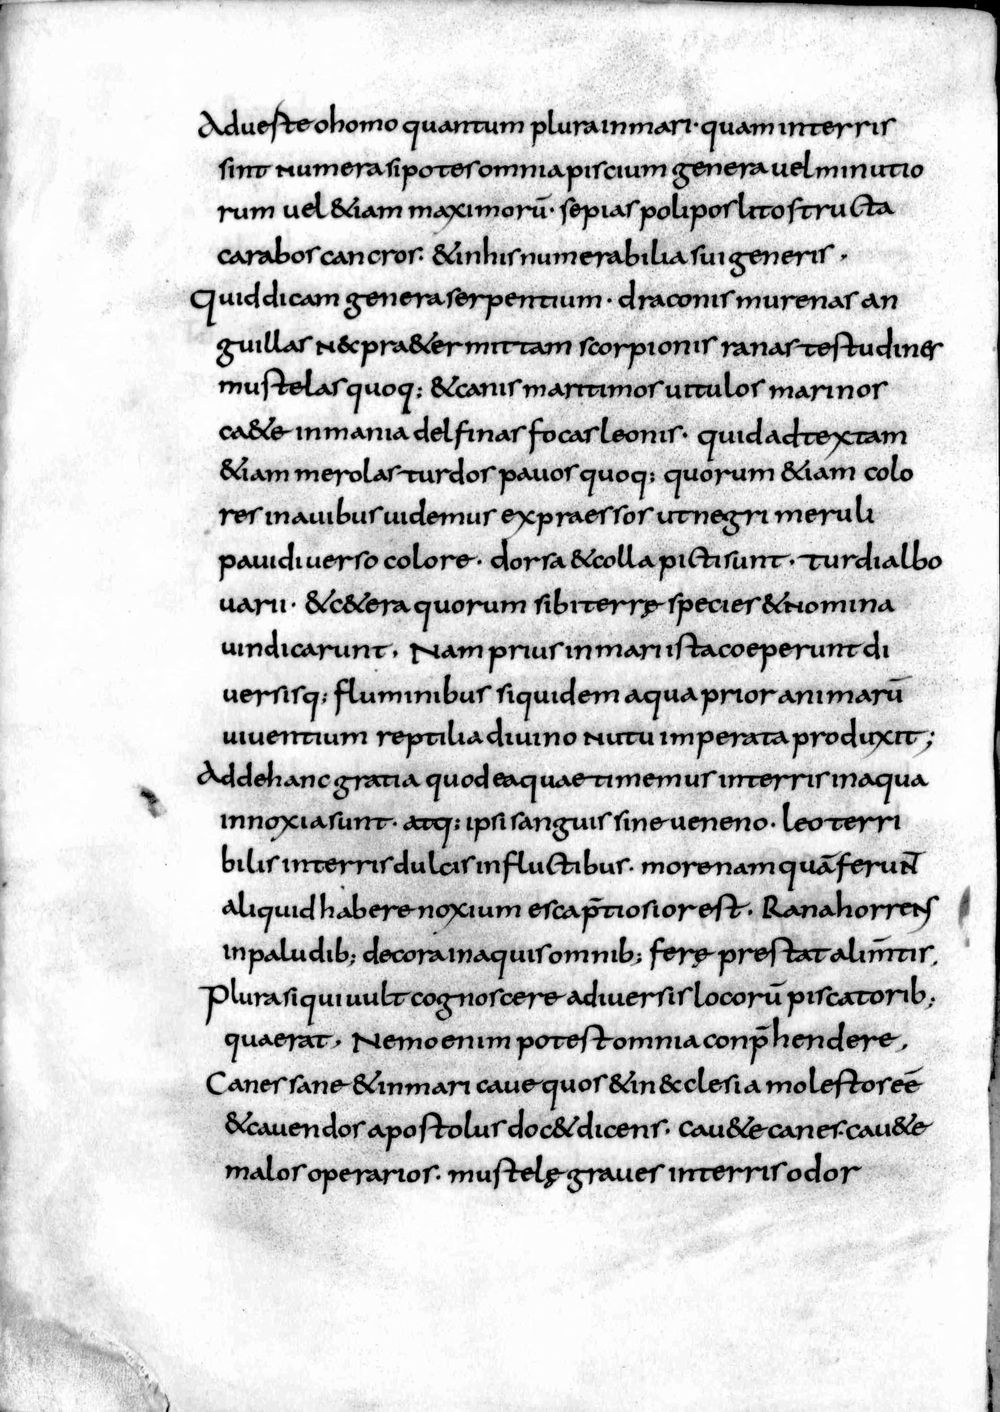 Adueste ohomo quantum plura inmari· quam interris
sint numera sipotes omnia piscium genera uel minutio
rum uel &iam maximorū· sepias polipos litostructa
carabos cancros· &inhis numerabilia sui generis,
Quid dicam genera serpentium· draconis murenas an
guillas N&pra&ermittam scorpionis ranas testudines
mustelas quoq; &canis maritimos uitulos marinos
ca&e inmania delfinas focas leonis· quid adtextam
&iam merolas turdos pauos quoq; quorum &iam colo
res inauibus uidemus expraessos utnegri meruli
paui diuerso colore· dorsa &colla picti sunt· turdi albo
uarii· &c&era quorum sibi terrę species &nomina
uindicarunt, Nam prius inmari ista coeperunt di
uersisq; fluminibus siquidem aqua prior animarū
uiuentium reptilia diuino nutu imperata produxit;
Addehanc gratia quod ea quae timemus interris inaqua
innoxia sunt· atq; ipsi sanguis sine ueneno· leo terri
bilis interris dulcis influctibus· morenam quā ferunt̄
aliquid habere noxium esca p̄tiosior est· Rana horrens
inpaludib; decora inaquis omnib; ferę prestat alim̄tis,
Plura siqui uult cognoscere adiuersis locorū piscatorib;
quaerat, Nemo enim potest omnia conp̄hendere,
Canes sane &inmari caue quos &in&clesia molestos eē
&cauendos apostolus doc&dicens· cau&e canes· cau&e
malos operarios· mustelę graues interris odor